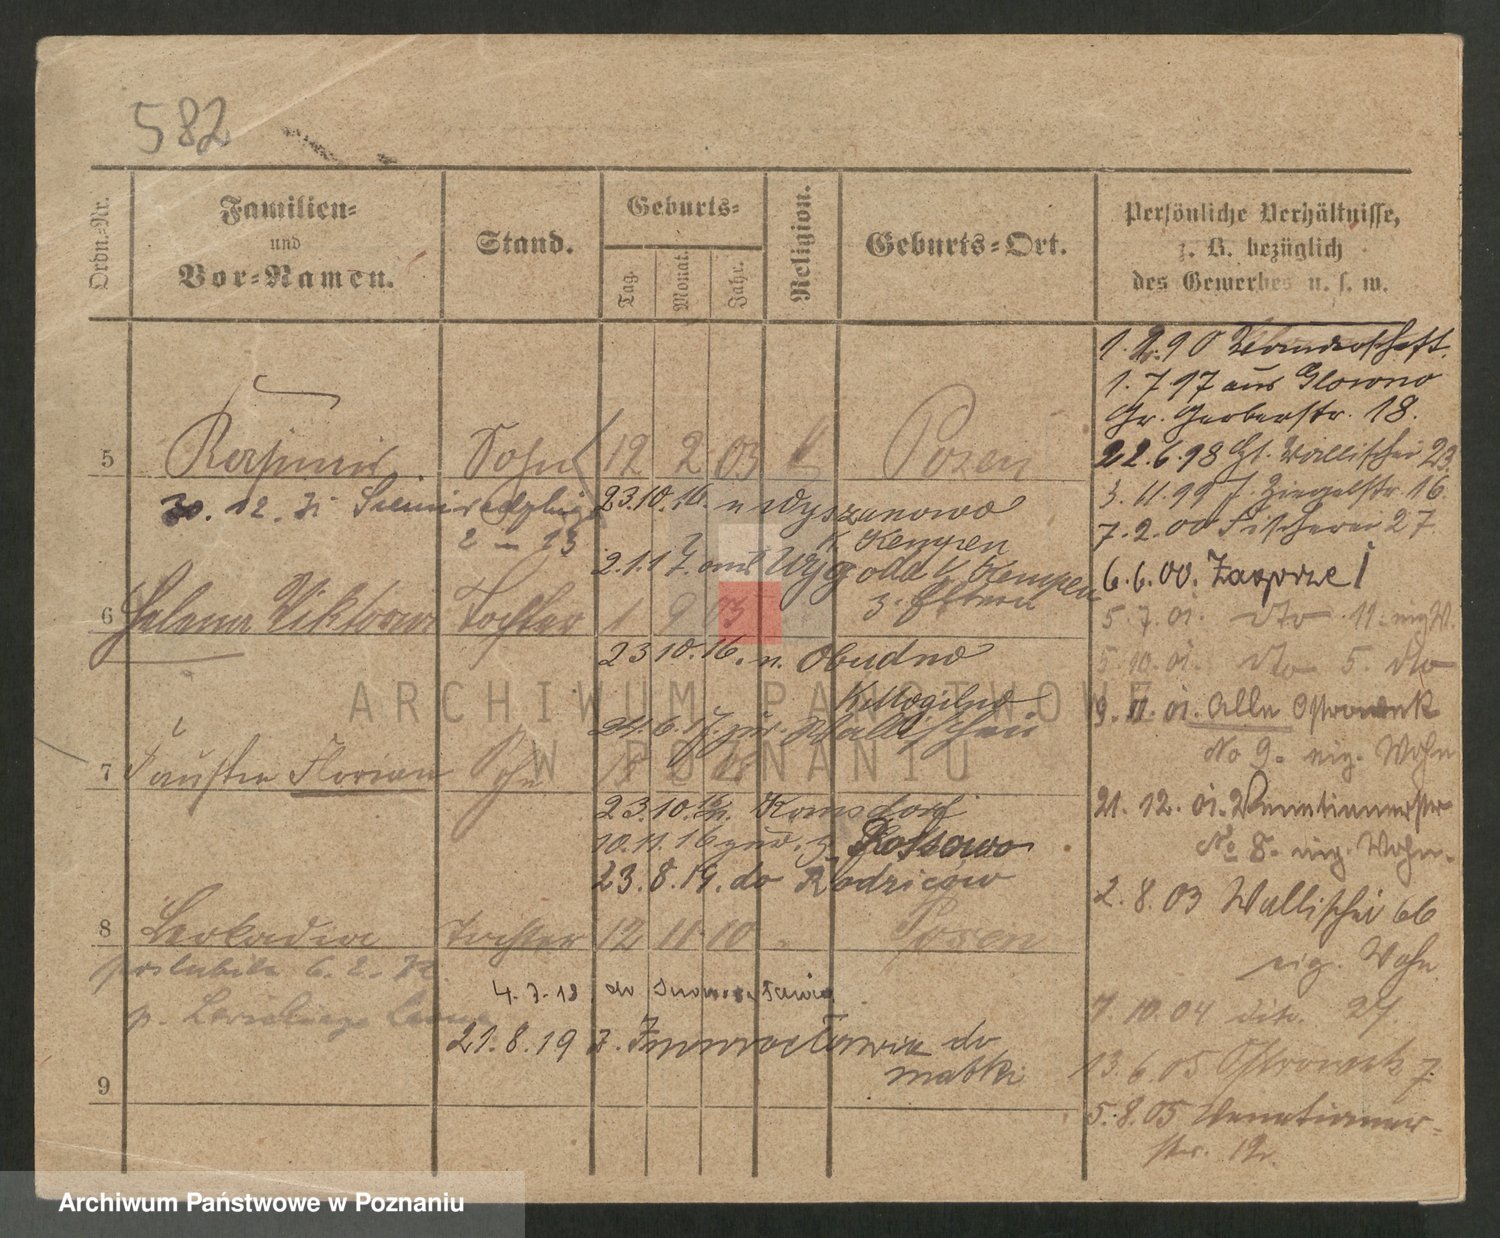 582
Ordn.-Nr.
Familien-
und
Vor-Namen.
Stand.
Geburts-
Tag.
Monat.
Jahr.
Religion.
Geburts-Ort.
Persönliche Verhältnisse,
z. B. bezüglich
des Gewerbes u. s. w.
1.2.90 Wanderschaft.
1.7.97 aus Glowno
Gr. Gerberstr. 18.
5 Kasimir Sohn 12 2 03 k Posen
22.6.98 Wallischei 23
30. 12. 31
23.10.16. n Wyszanowo
3.11.99 Ziegelstr. 16.
2 - 13
K. Kempen
7.2.00 Fischerei 27
21.1.17. aus Wygoda K Kempen
z. Eltern
6.6.00. Zaborze
6 Helena Viktoria Tochter 1 9 05
5.7.01. dto 11. eig W.
23 10. 16. n. Obudno
5.10.01. dto 5. dto
K Mogilno
24.6.17. zur. Wallischei
9.11.01. Alle Ostrowek
No 9. eig. Wohn
7 Faustin Florian Sohn
23.10.16. n. Konsdorf
21. 12. 01. Venetianerstr
10.11.16 zur. z. Kossowo
No 8. eig. Wohn.
23.8.19. do Rodziców
2.8.03 Wallischei 66
8 Leokadia Tochter 12 11 10 Posen
eig. Wohn
poslubila 6.2.32
4.7.18. do Inowrocławia
p.
7.10.04 dto. 27.
21.8.19 z. Inowrocławia do
matki
13.6.05 Ostrowek 7.
9
5.8.05 Venetianer-
str. 12.
ARCHIWUM PAŃSTWOWE
W POZNANIU
Archiwum Państwowe w Poznaniu